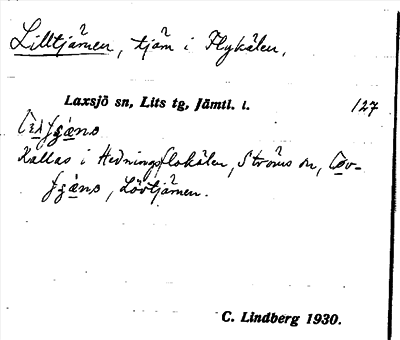 Lilltjärnen, tjärn i Flykälen.
Laxsjö sn, Lits tg, Jämtl. l. 127
Kallas i Hedningsflokälen, Ströms sn,
Lövtjärnen.
C. Lindberg 1930.